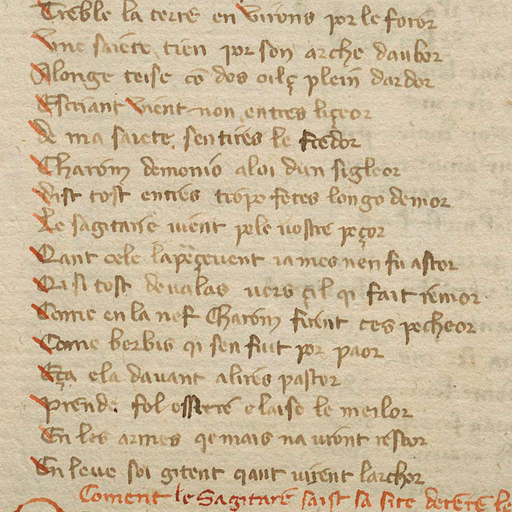 Treble la terre en virons por le foror
Vne saiete tien por son arche daubor
Alonge teise cō dos oilç plein dardor
Escriant vient non entres liçeor
De ma saiete sentires le fredor
Charōn demonio aloi dun sigleor
dist tost entres trope fetes longo demor
Le sagitarie uient pole nostre peçor
Qant cele laperçeuent ia mes nen fu astor
Qi si tost deualas uers çil qi fait remor
Come en la nef Charōn firent ces pecheor
Come berbis qi sen fuit por paor
Eça ela dauant alires pastor
Prende fol e laise le meilor
En les armes qe mais na uront restor
En leue soi gitent qant uirent larcher
Coment le Sagitare saist sa site de le